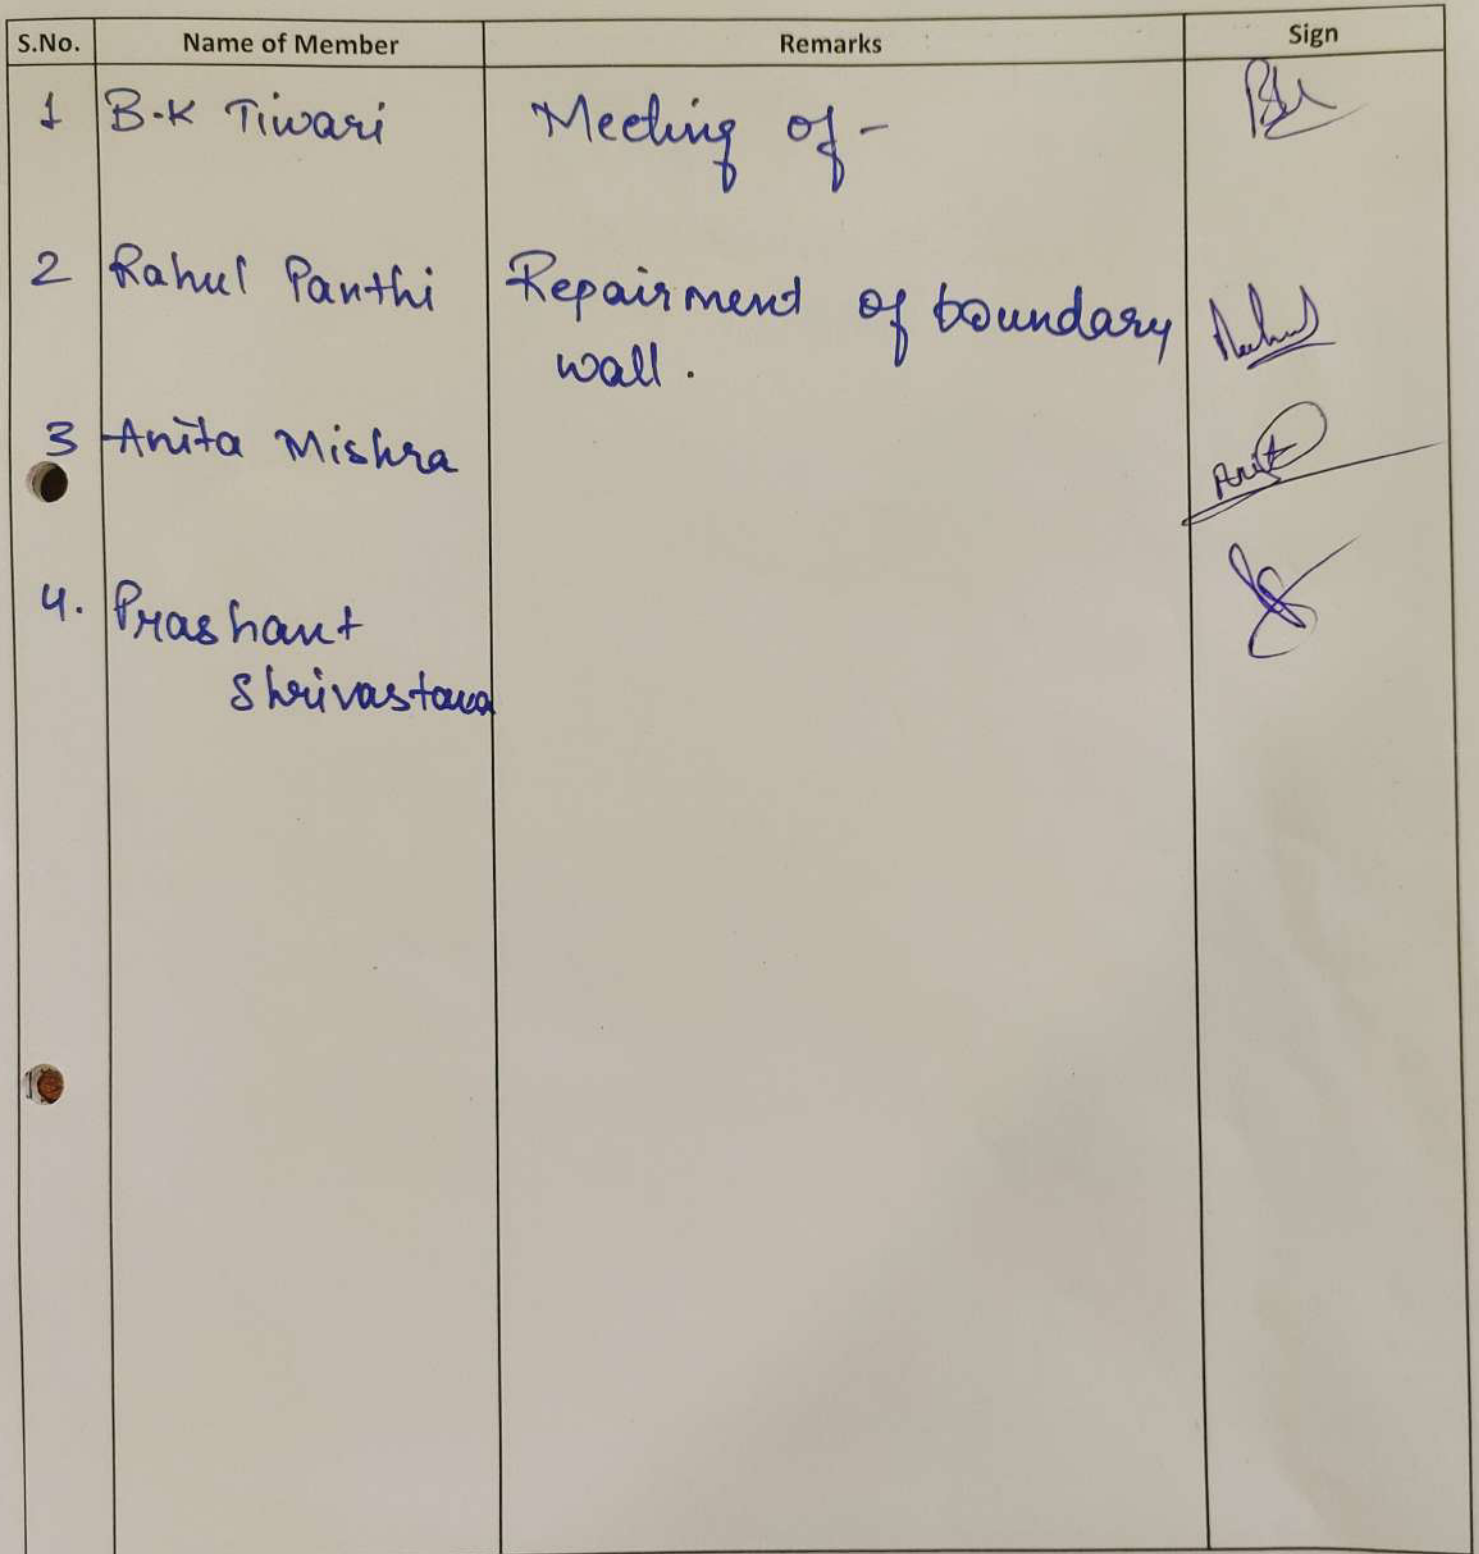 S.No. Name of Member Remarks Sign
1 B.K Tiwari Meeting of -
2 Rahul Panthi Repairment of boundary
wall.
3 Anita Mishra
4. Prashant
Shrivastava